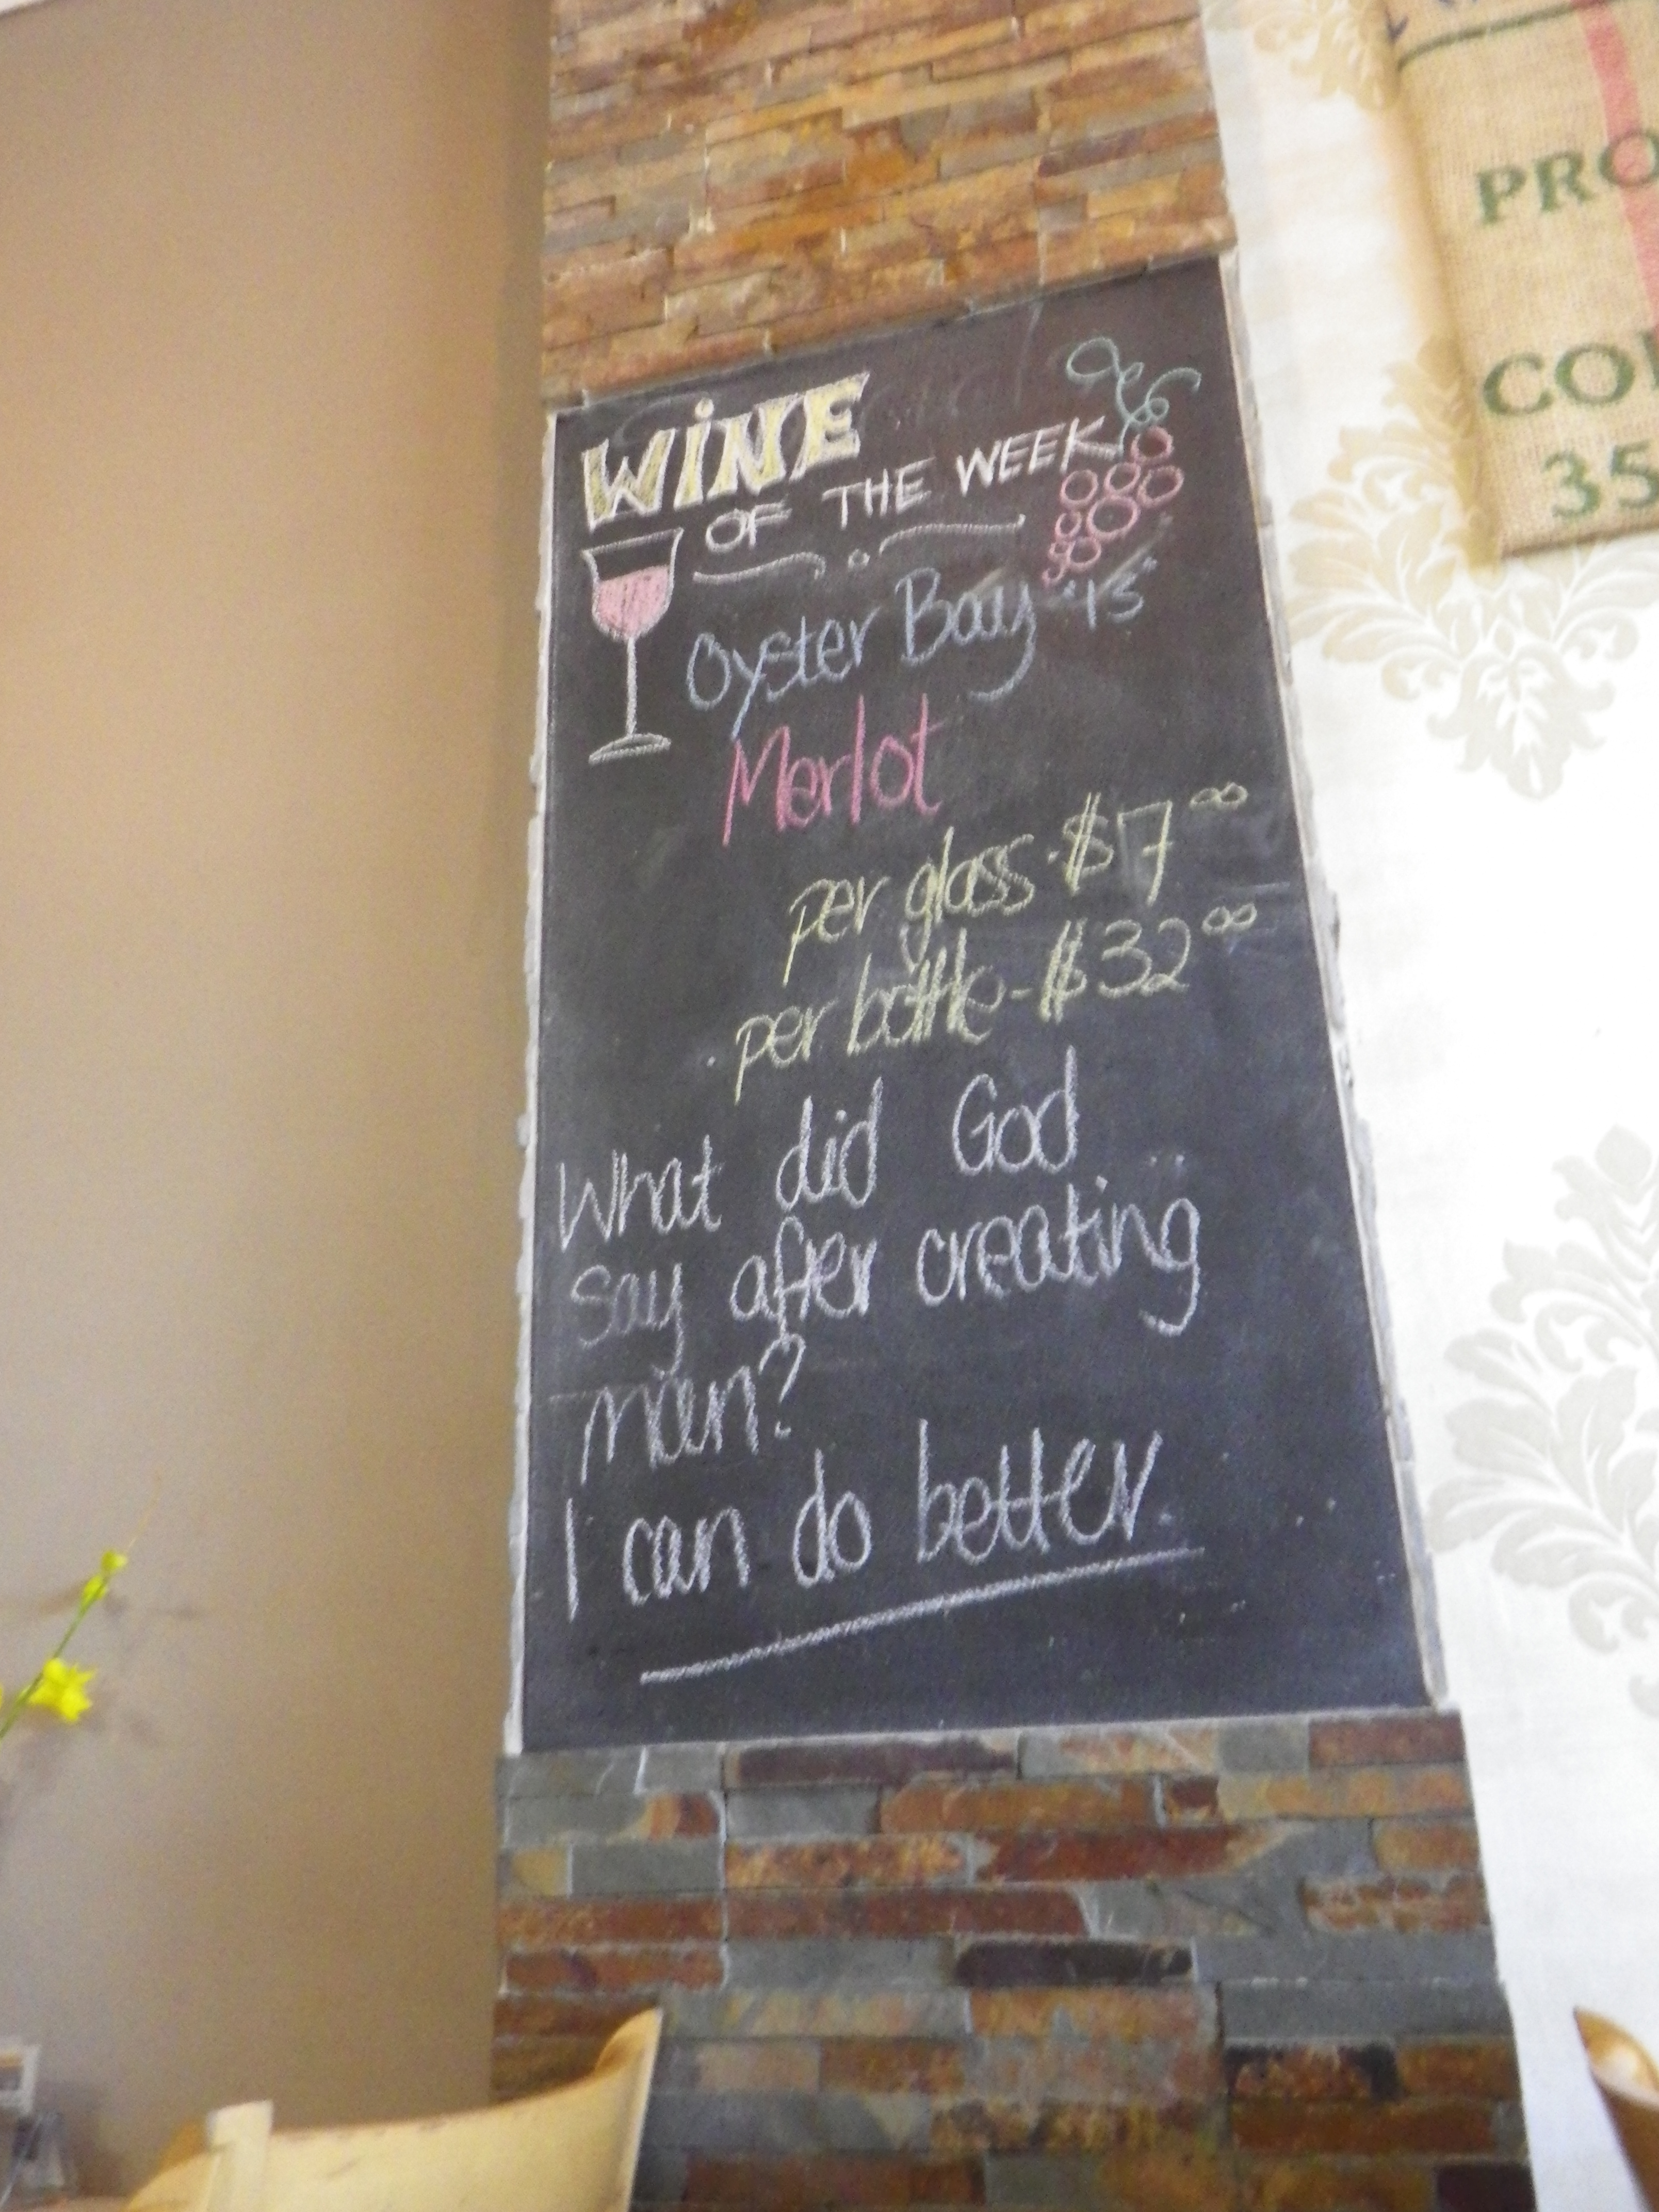 WiNE
OF THE WEEK
Oyster Bay "15"
Merlot
per glass - $7.00
per bottle - $32.00
What did God
say after creating
man?
I can do better.
PRO
CO
35